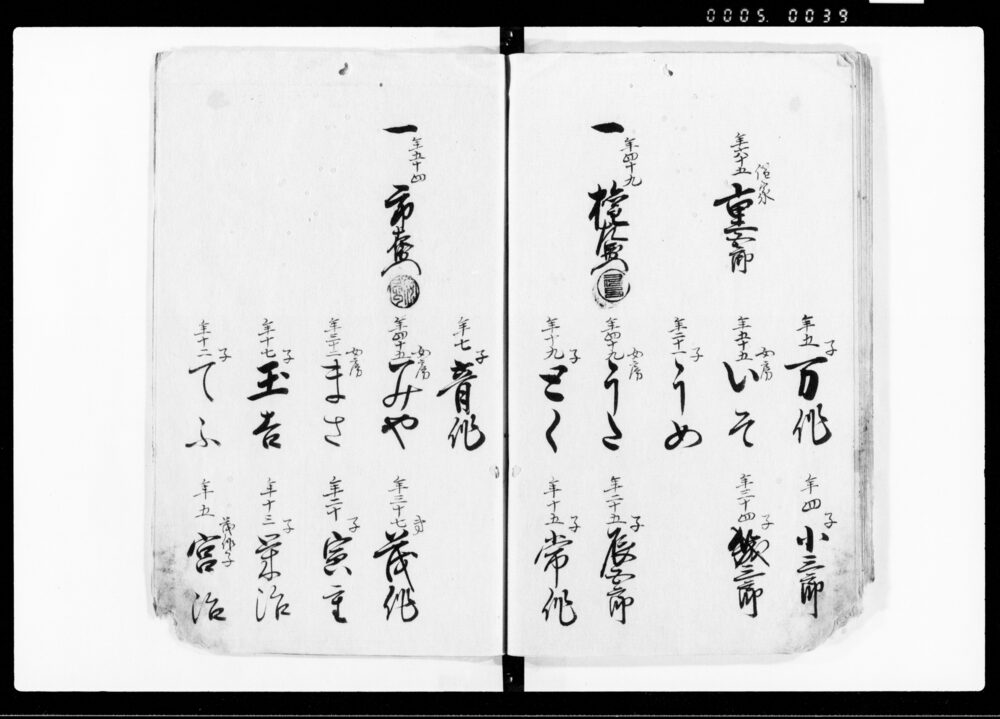 0005. 0039
年五 子 万作
年四 子 小三郎
年六十五 借家 重六郎
年五十五 女房 いそ
年三十四 子 三郎
年二十一 子 りめ
一 年四十九
年四十九 女房 りさ
年二十五 子 辰五郎
年十九 子 とく
年十五 子 常作
年七 子 音作
一 年五十四 市
年四十五 女房 みや
年三十七 弟 茂作
年三十二 女房 まさ
年二十 子 寅吉
年十七 子 玉吉
年十三 子 栄治
年十二 子 てふ
年五 茂作子 宮治